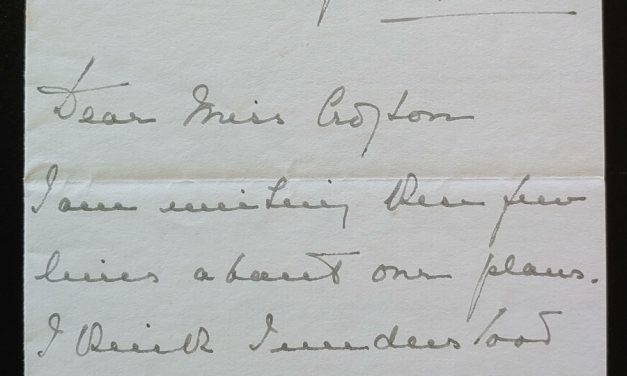 Dear Miss Crofton
I am writing these few
lines about our plans.
I think I understood